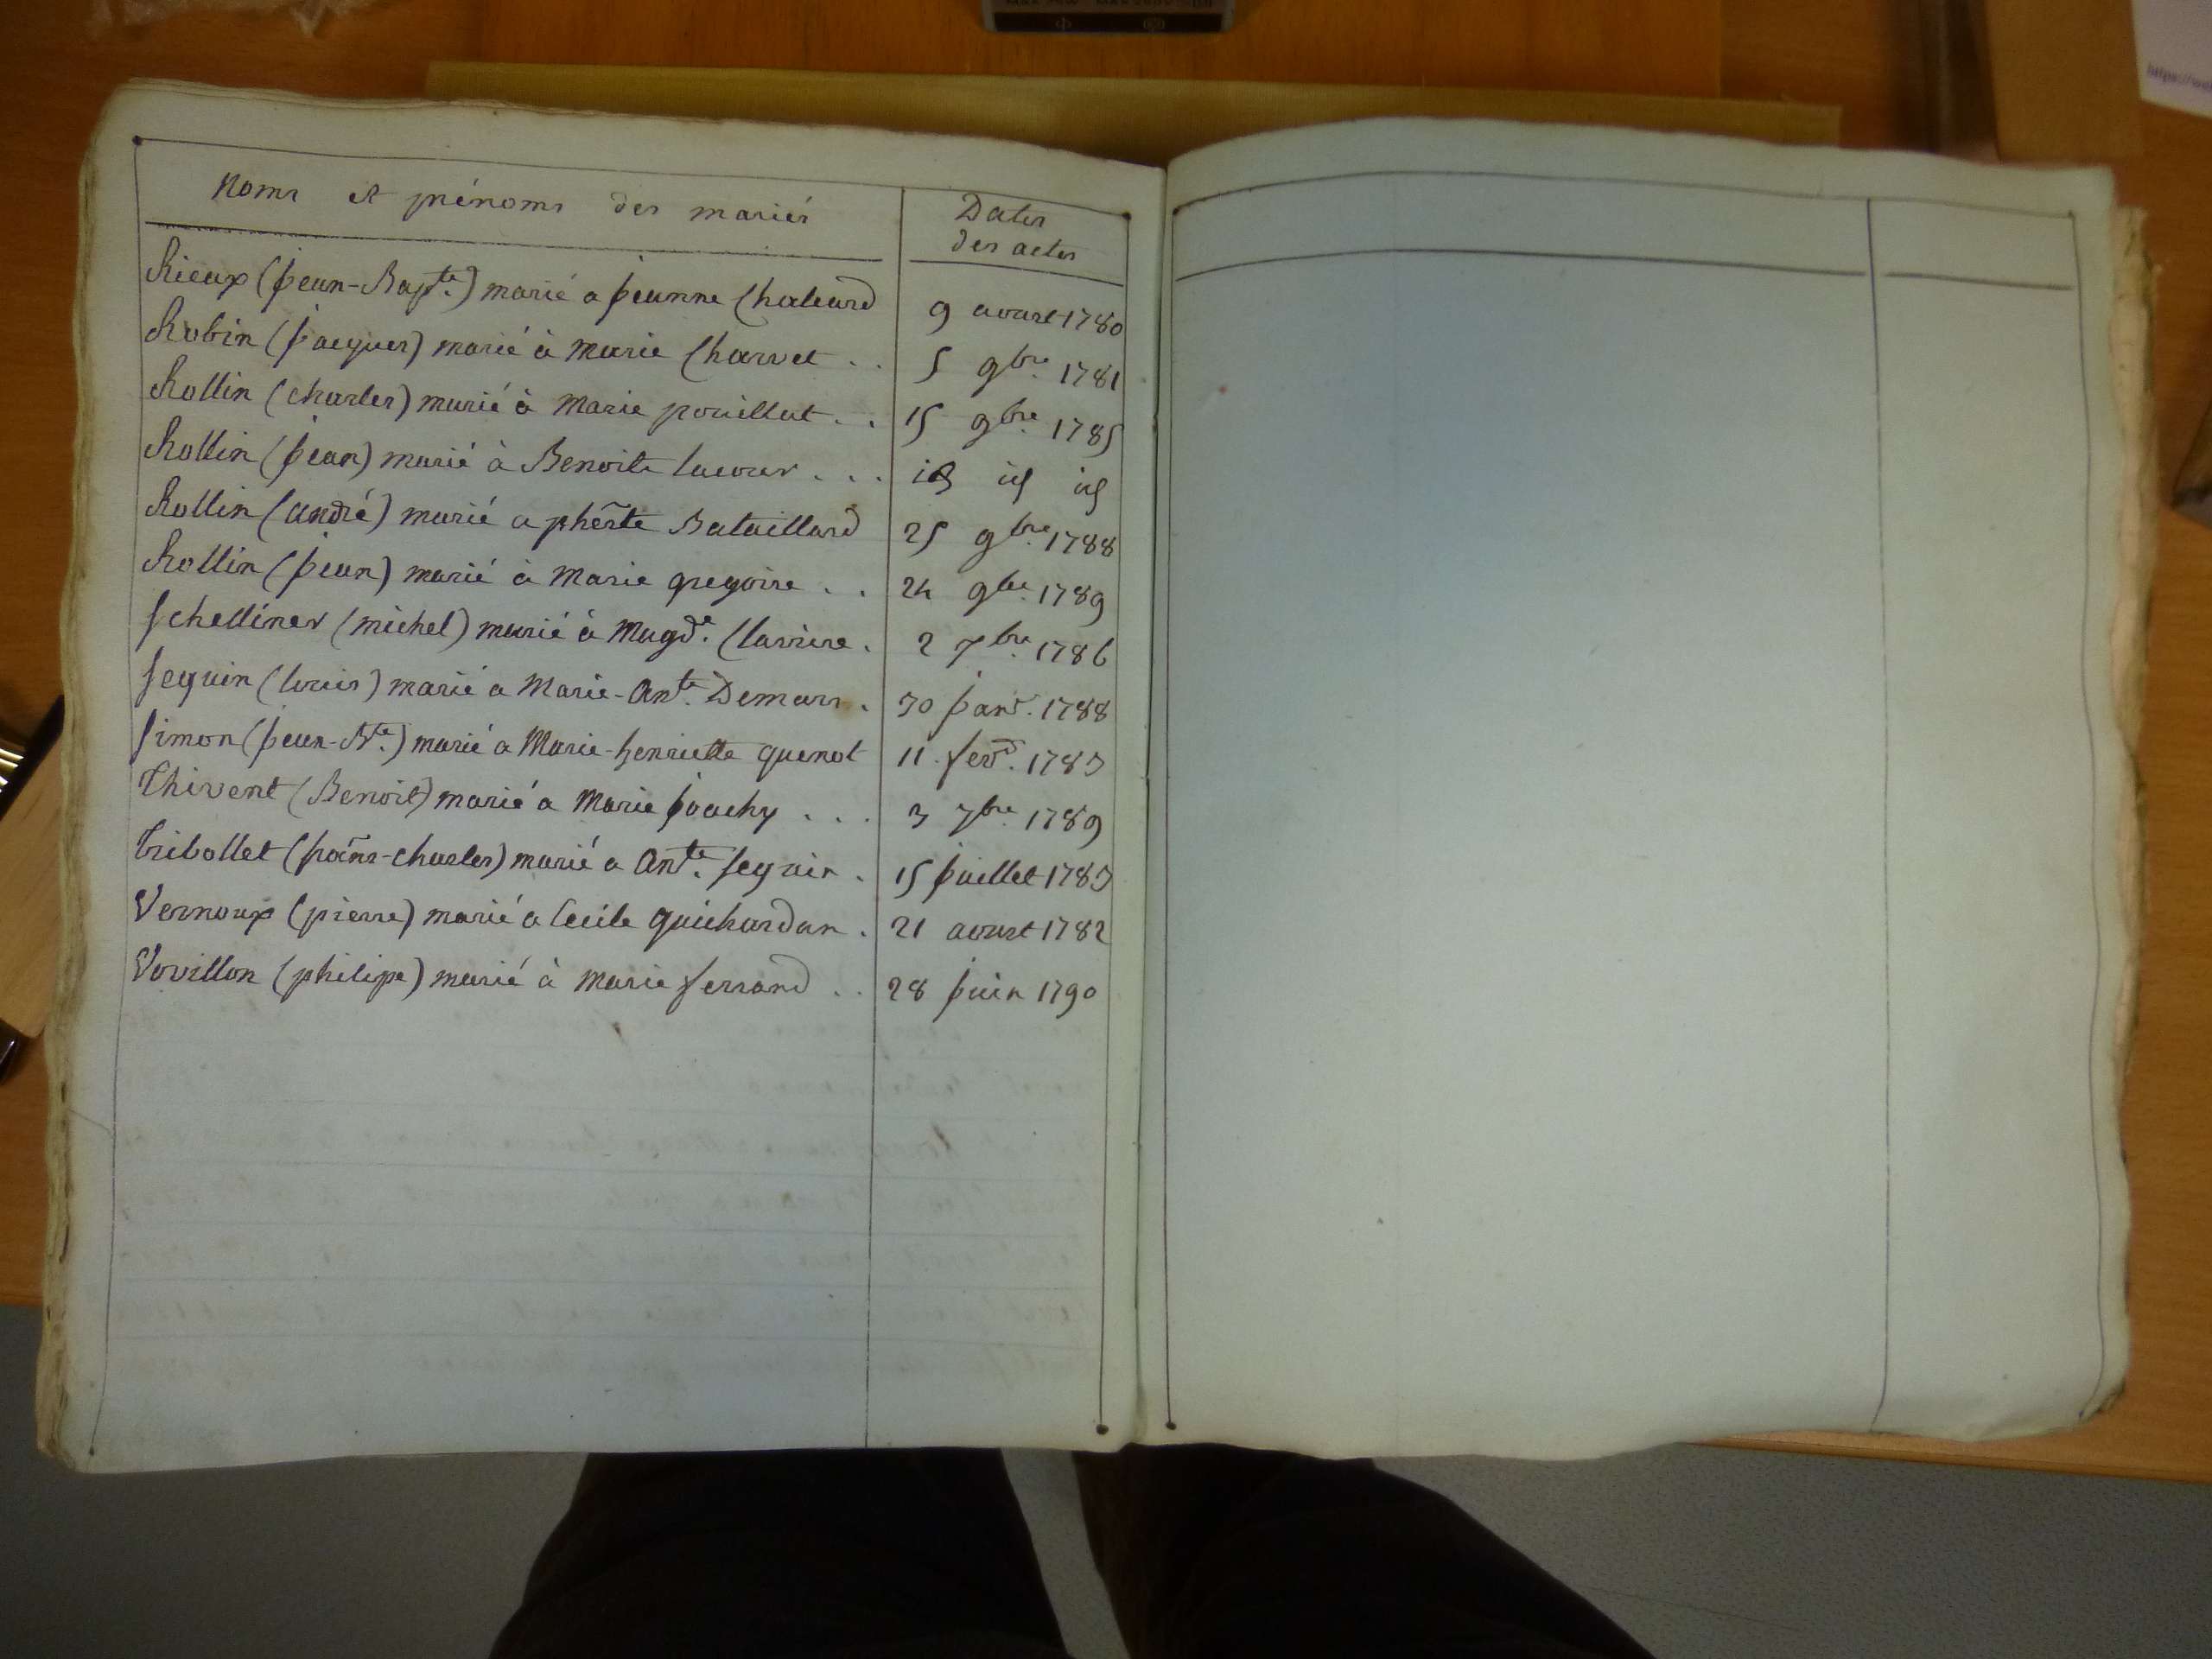 Noms et prénoms des mariés
Dates
des actes
Rieux (Jean-Bapte.) marié a Jeanne Chaleard 9 aoust 1780
Robin (Jacques) marié à Marie Charvet . . 5 9bre. 1781
Rollin (charles) marié à Marie pouillat . . 15 9bre. 1785
Rollin (Jean) marié à Benoite lacour . . . id id
Rollin (andré) marié a phêrte Bataillard 25 9bre. 1788
Rollin (Jean) marié à Marie gregoire . . 24 9bre. 1789
Schelliner (michel) marié à Magde. Clariere . 2 7bre. 1786
Seguin (louis) marié a Marie-Ante. Demars . 30 Janr. 1788
Simon (Jean-Bte.) marié a Marie-henriette quenot 11 fevr. 1783
Thivent (Benoit) marié a Marie Joachy . . . 3 7bre. 1789
Tribollet (frans-charles) marié a Ante. Seguin . 15 Juillet 1783
Vernoux (pierre) marié a Cecile guichardan . 21 aoust 1782
Vovillon (philipe) marié à Marie ferrand . . 28 Juin 1790